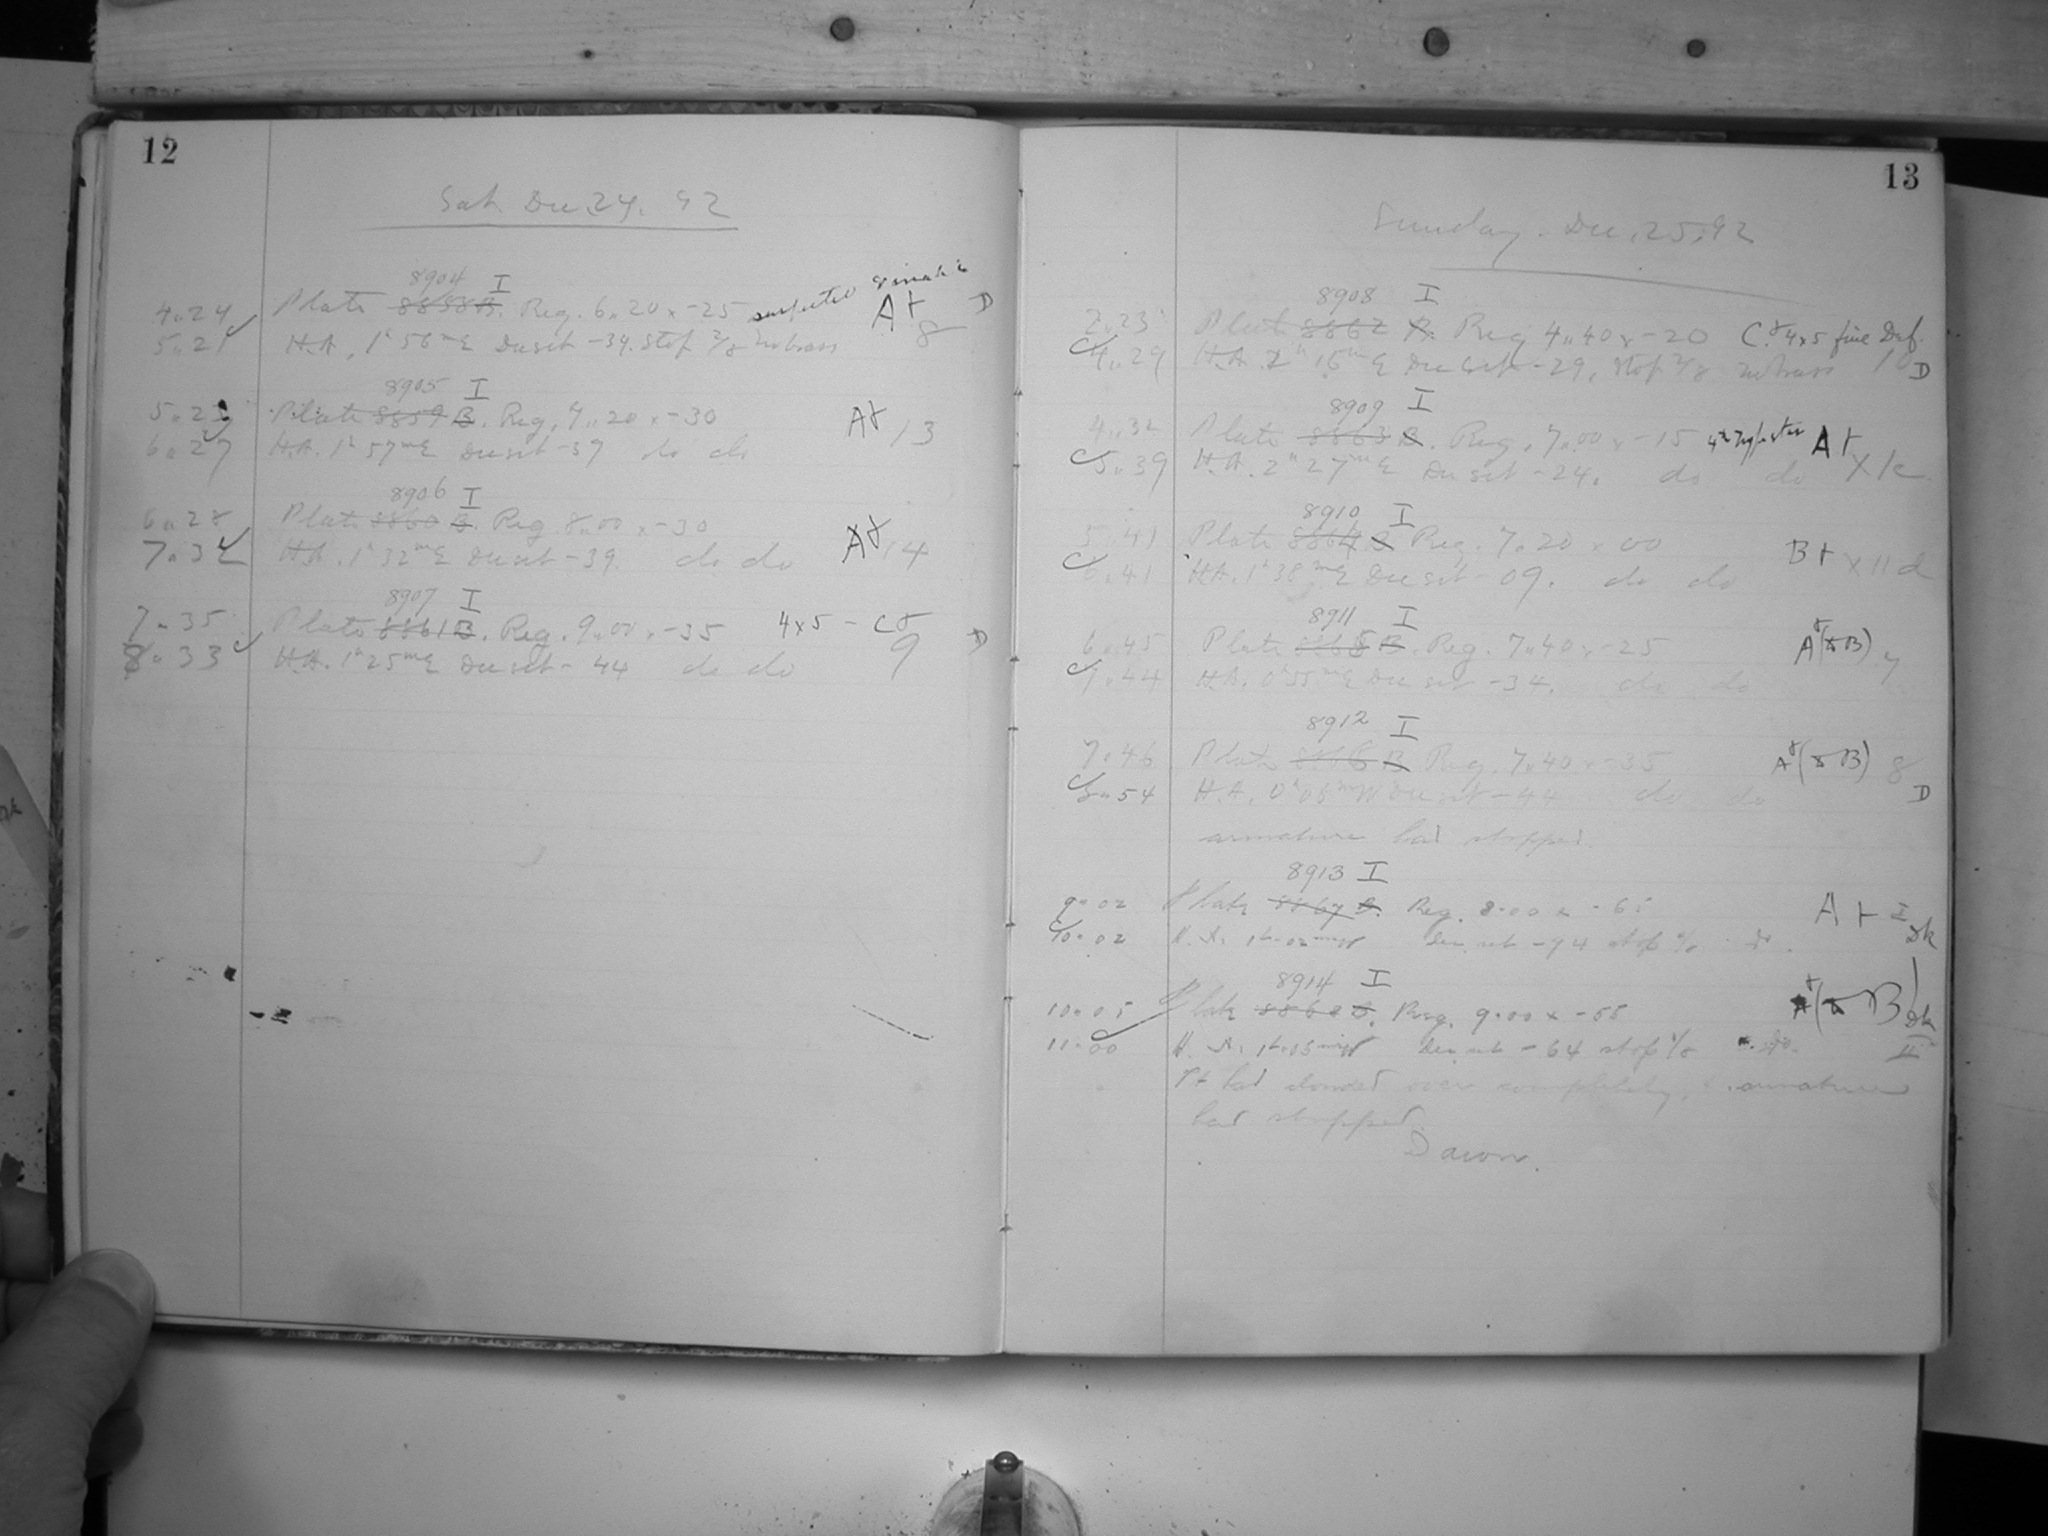 12
Sat. Dec. 24. 92
8904 I
4.24 Plate 8858 B. Reg. 6.20 x -25 A
5.21 H.A. 1h 56m E Dec set -34. Stop 7/8 8 D
8905 I
5.23 Plate 8859 B. Reg. 7.20 x -30 A 13
6.27 H.A. 1h 57m E Dec set -39 do do
8906 I
6.28 Plate 8860 B. Reg. 8.00 x -30
7.32 H.A. 1h 32m E Dec set -39. do do A 14
8907 I
7.35 Plate 8861 B. Reg. 9.00 x -35 4x5 - C
8.33 H.A. 1h 25m E Dec set -44 do do 9 D
13
Sunday. Dec. 25, 92
8908 I
Plate 8862 B. Reg 4.40 x -20 C. 4x5 fine Def.
4.29 H.A. 2h 15m E Dec set -29, Stop 7/8 10 D
8909 I
4.32 Plate 8863 B. Reg. 7.00 x -15 A
5.39 H.A. 2h 27m E Dec set -24. do do
8910 I
5.41 Plate 8864 B Reg. 7.20 x 00 B
6.41 H.A. 1h 38m E Dec set -09. do do
8911 I
6.45 Plate 8865 B. Reg. 7.40 x -25 A
7.44 H.A. 0h 55m E Dec set -34. do do
8912 I
7.46 Plate 8866 B Reg. 7.40 x -35 A 8
8.54 H.A. 0h 05m W Dec set -44 do do D
armature had stopped.
8913 I
9.02 Plate 8867 B. Reg. 8.00 x -65 A
10.02 H.A. 1h.02m W Dec. set -74 stop
8914 I
10.05 Plate 8868 B. Reg. 9.00 x -55
11.00 H.A. 1h.05m W Dec. set -64 stop
It had clouded over completely, & armature
had stopped.
Dawn.